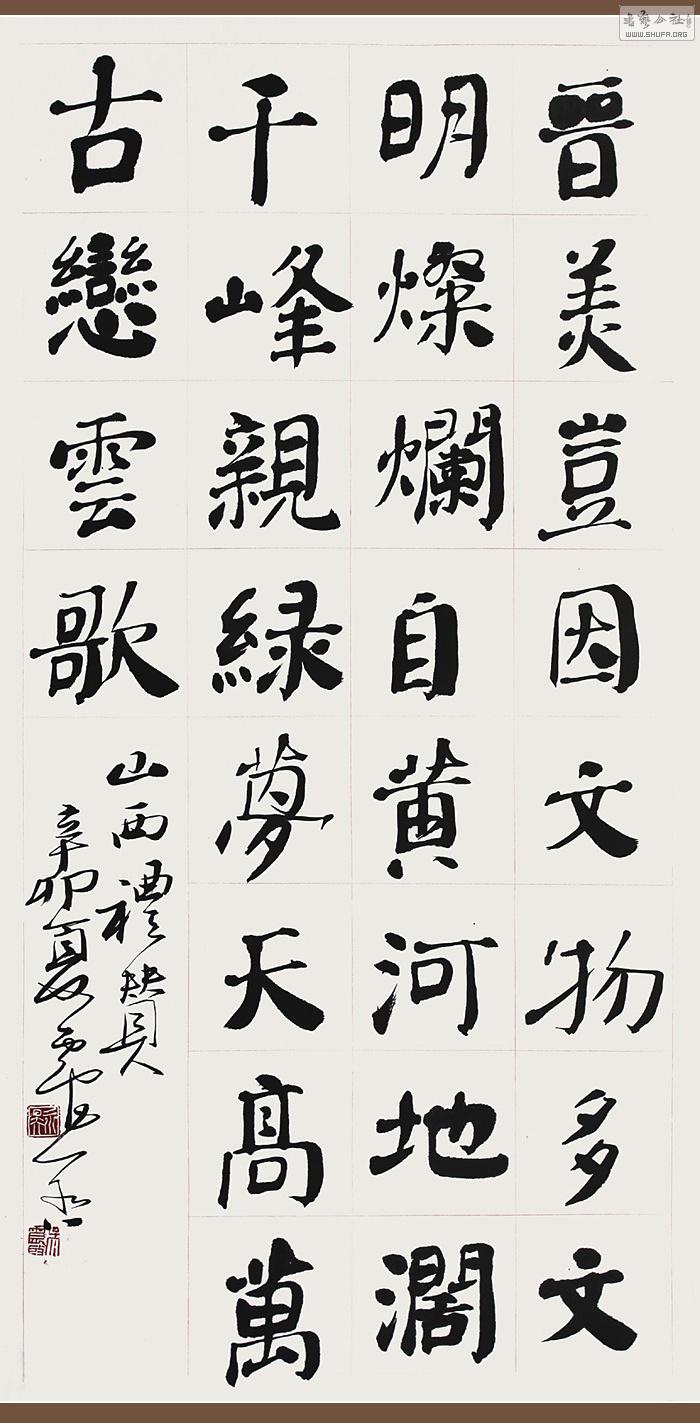 晉美豈因文物多文
明燦爛自黄河地濶
千峰親緑夢天高萬
古戀雲歌
山西禮贊
辛卯夏
书艺公社
WWW.SHUFA.ORG